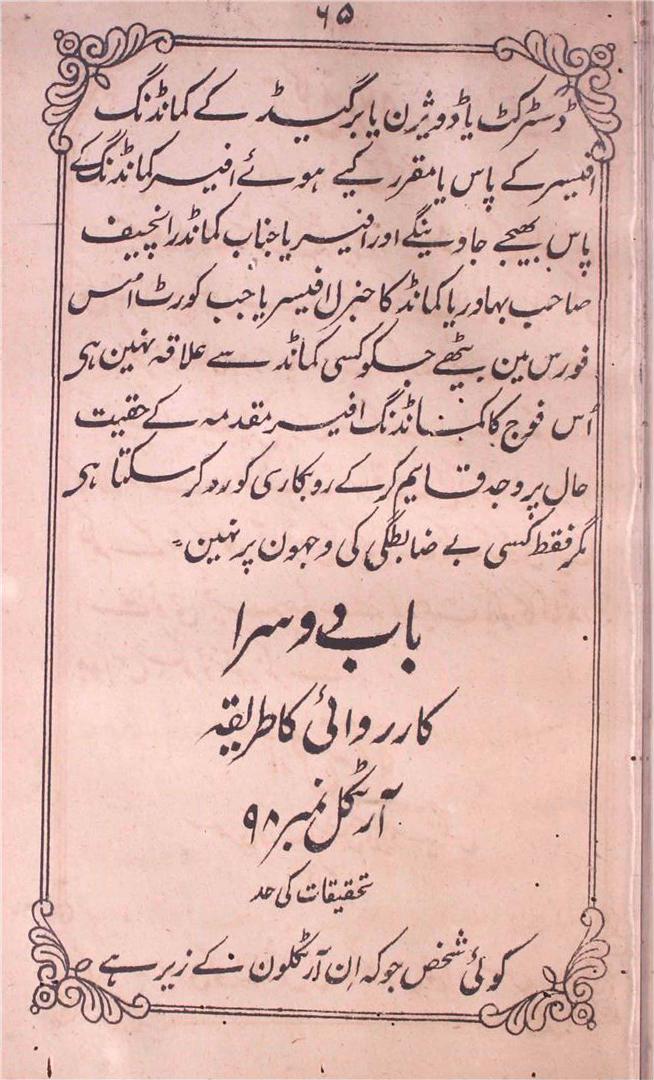 ۶۵
ڈسٹرکٹ یا ڈویژن یا برگیڈ کے کمانڈنگ
افیسر کے پاس یا مقرر کیے ہوئے افیسر کمانڈنگ کے
پاس بھیجے جاوینگے اور افیسر یا جناب کمانڈر انچیف
صاحب بہادر یا کمانڈ کا جنرل افیسر یا جب کورٹ امس
فورس مین بیٹھے جسکو کسی کمانڈ سے علاقہ نہین ہی
اُس فوج کا کمانڈنگ افیسر مقدمہ کے حقیت
حال پر وجہ قایم کر کے روبکاری کو رد کر سکتا ہی
مگر فقط کسی بے ضابطگی کی وجہون پر نہین۔
باب دوسرا
کارروائی کا طریقہ
آرٹکل نمبر ۹۸
تحقیقات کی حد
کوئی شخص جو کہ اِن آرٹکلون کے زیر ہے